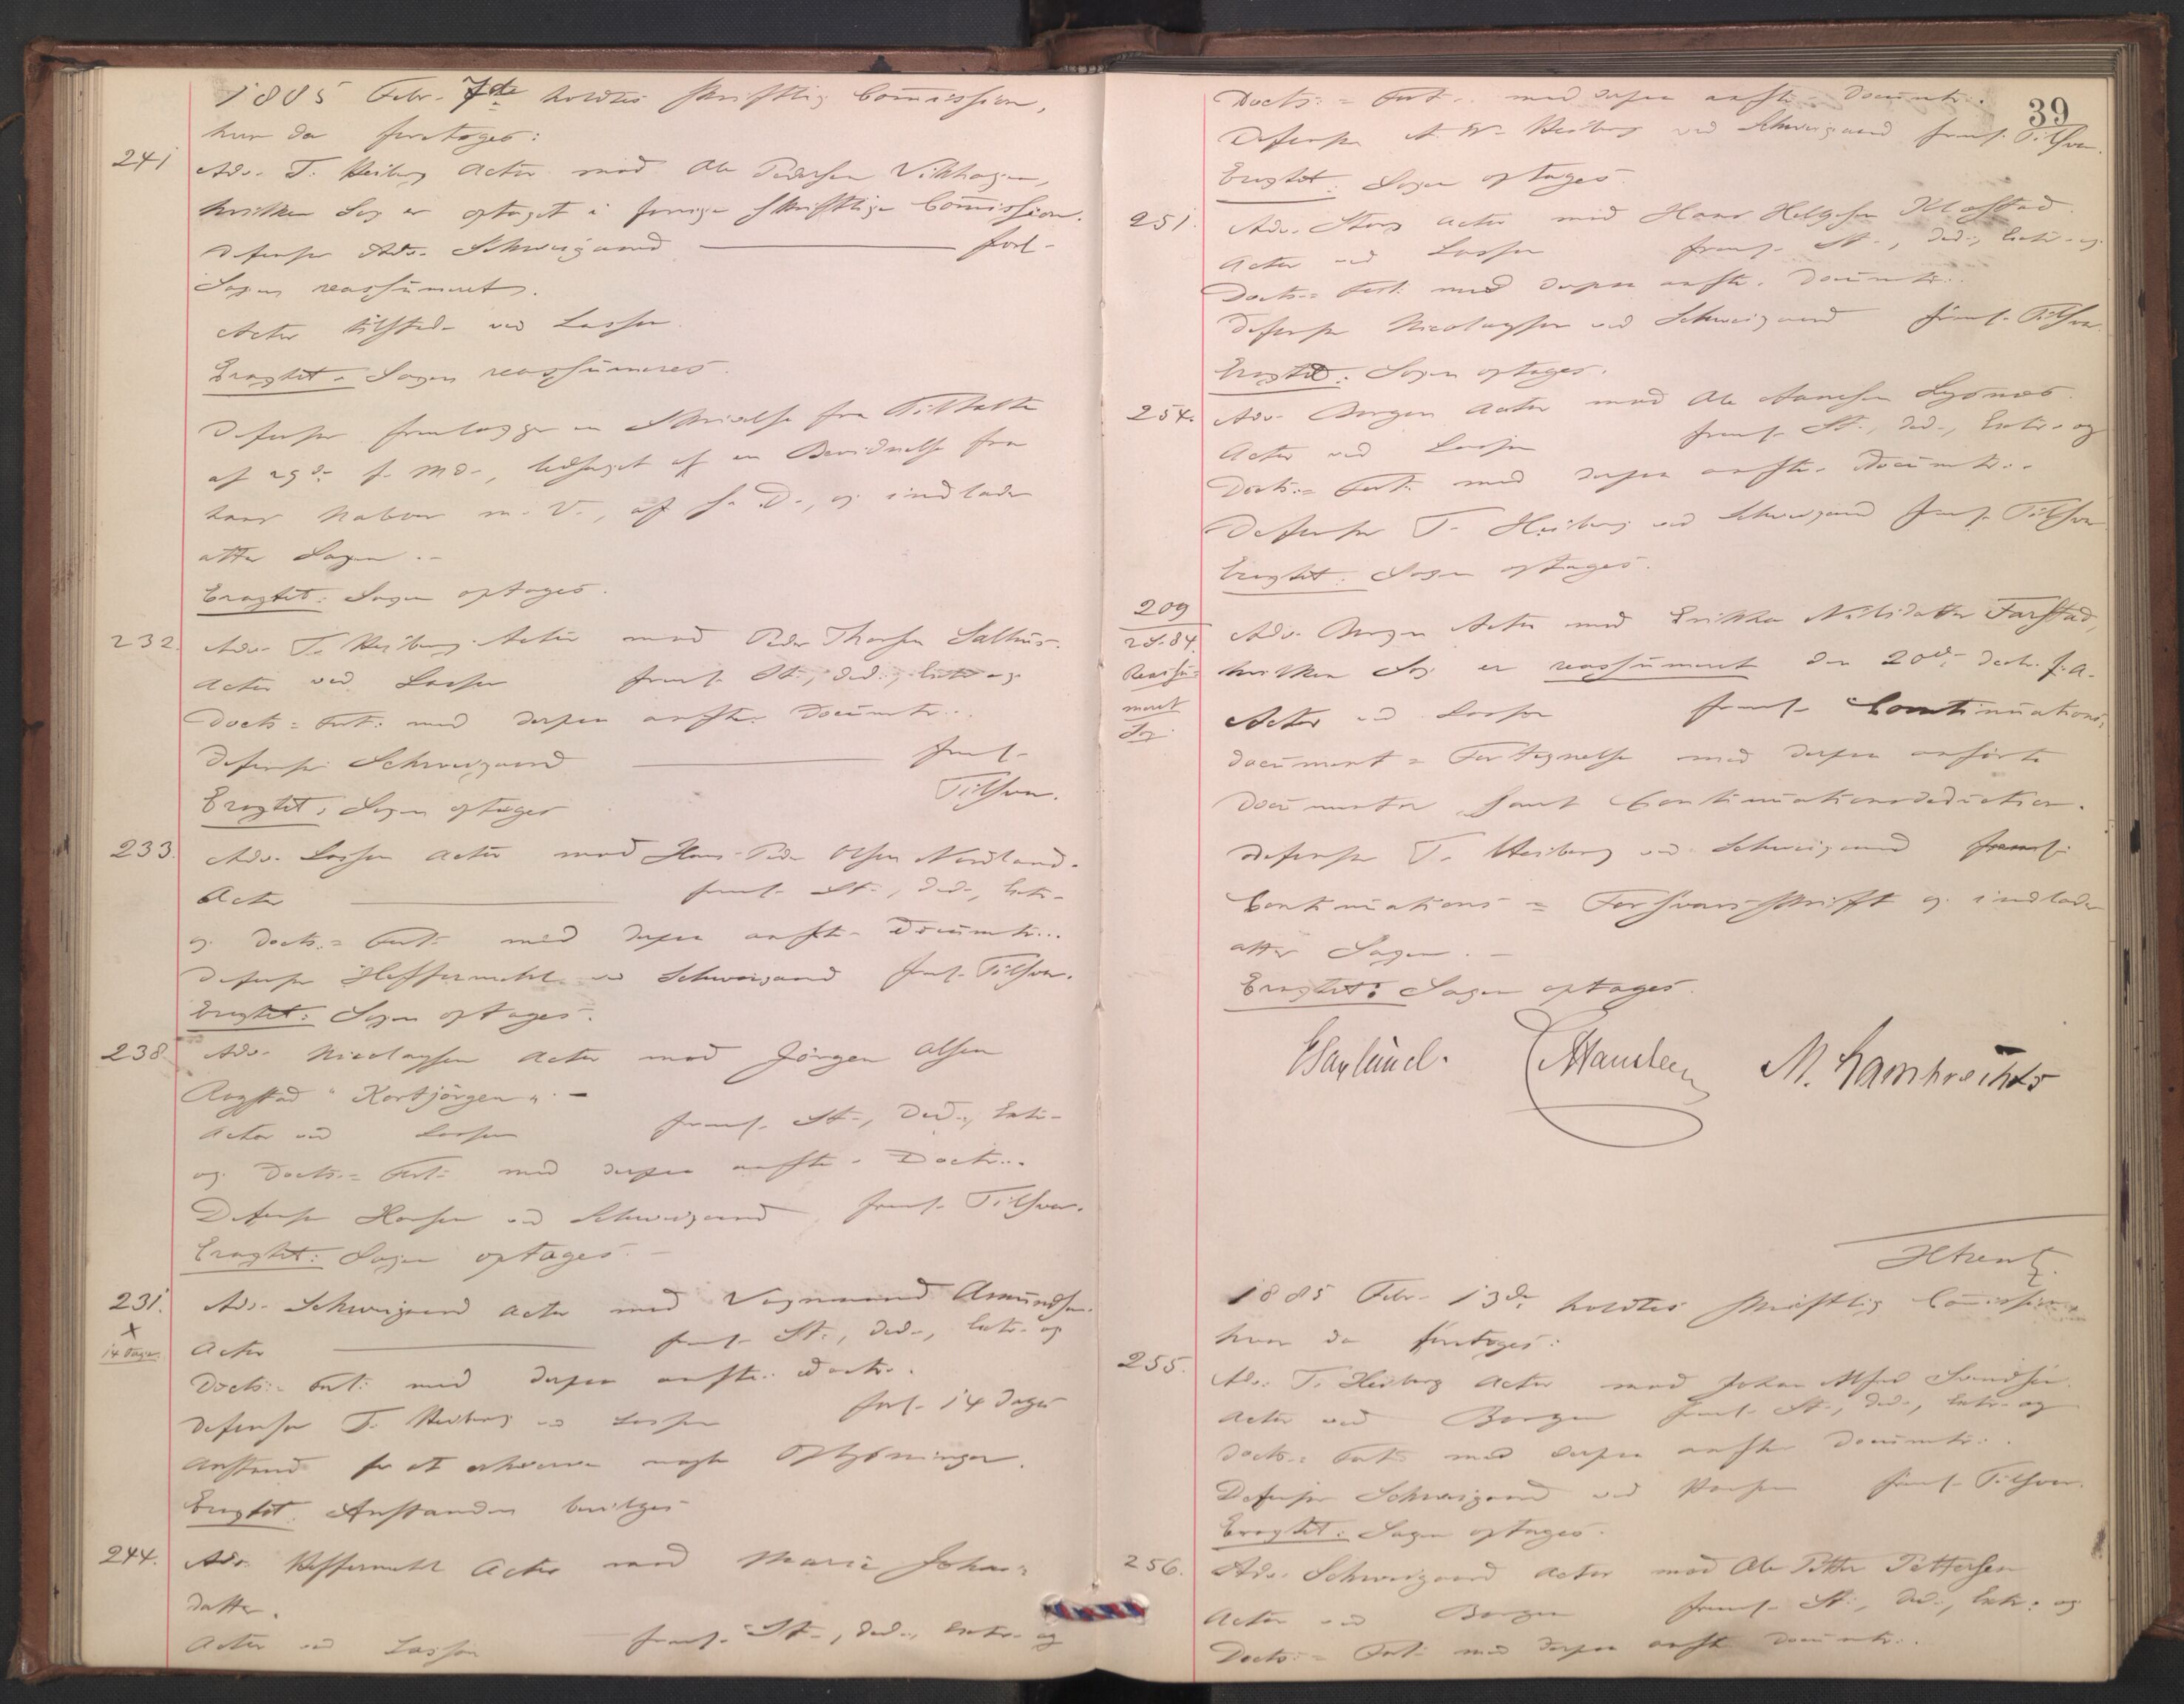 1885 Febr. 7de holdtes skriftlig Commission,
hvor da foretoges:
241 Adv. T. Heiberg Actor mod Ole Pedersen Vikhagen,
hvilken Sag er optaget i forrige skriftlige Commission.
Defensor Adv. Schweigaard forl.
Sagen reassumeret.
Actor tilstede ved Lasson.
Eragtet: Sagen reassumeres.
Defensor fremlægger en Skrivelse fra Tiltalte
af 29de f. Md., ledsaget af en Bevidnelse fra
hans Naboer m. V., af s. D., og indlader
atter Sagen.
Eragtet: Sagen optages.
232. Adv. T. Heiberg Actor mod Peder Thorsen Salhus.
Actor ved Lasson freml. St., Ded., Extr. og
Docts.= Fort. med derpaa anfte. Documtr..
Defensor Schweigaard freml.
Tilsvar.
Eragtet: Sagen optages
233. Adv. Lasson Actor mod Hans Peder Olsen Nordland.
Actor freml. St., Ded., Extr.
og Docts.= Fort. med derpaa anfte. Documtr...
Defensor Heffermehl ved Schweigaard freml. Tilsvar.
Eragtet: Sagen optages.
238. Adv. Nicolaysen Actor mod Jörgen Olsen
Rogstad "Kortjörgen". -
Actor ved Lasson freml. St., Ded., Extr.
og Docts.= Fort. med derpaa anfte. Doctr..
Defensor Hansen ved Schweigaard, freml. Tilsvar.
Eragtet: Sagen optages. -
231. Adv. Schweigaard Actor mod Amundsen.
x Actor freml. St., Ded., Extr. og
14 Dage. Docts.= Fort. med derpaa anfte. Doctr..
Defensor T. Heiberg ved Lasson forl. 14 Dages
Anstand for at erhverve nogle Oplysninger.
Eragtet. Anstanden bevilges
244. Adv. Heffermehl Actor mod Marie Johans=
datter.
Actor ved Lasson freml. St., Ded., Extr. og
39
Docts.= Fort. med derpaa anfte. Documtr..
Defensor A. W. Heiberg ved Schweigaard freml. Tilsvar.
Eragtet: Sagen optages.
251. Adv. Stang Actor mod Hans Helgesen Klofstad.
Actor ved Lasson freml. St., Ded., Extr. og
Docts.= Fort. med derpaa anfte. Documtr..
Defensor Nicolaysen ved Schweigaard freml. Tilsvar.
Eragtet: Sagen optages.
254. Adv. Bergen Actor mod Ole Lysnæs.
Actor ved Lasson freml. St., Ded., Extr. og
Docts.= Fort. med derpaa anfte. Documtr..
Defensor T. Heiberg ved Schweigaard freml. Tilsvar
Eragtet: Sagen optages.
209 Adv. Bergen Actor mod Erikka Nilsdatter Farstad,
28.84. hvilken Sag er reassumeret den 20de Decbr. f. A.
Reassu= Actor ved Lasson freml. Continuations=
meret document= Fortegnelse med derpaa anførte
Sag. Documenter samt Continuationsdeduction.
Defensor T. Heiberg ved Schweigaard freml.
Continuations= Forsvarsskrift og indlader
atter Sagen. -
Eragtet: Sagen optages.
M. Lambrechts
1885 Febr. 13de holdtes skriftlig Commission,
hvor da foretoges:
255. Adv. T. Heiberg Actor mod Johan Alfred Svendsen.
Actor ved Bergen freml. St., Ded., Extr. og
Docts.= Fort. med derpaa anfte Documtr..
Defensor Schweigaard ved Hansen freml. Tilsvar.
Eragtet: Sagen optages.
256. Adv. Schweigaard Actor mod Ole Petter Pettersen
Actor ved Bergen freml. St., Ded., Extr. og
Docts.= Fort. med derpaa anfte Documtr..